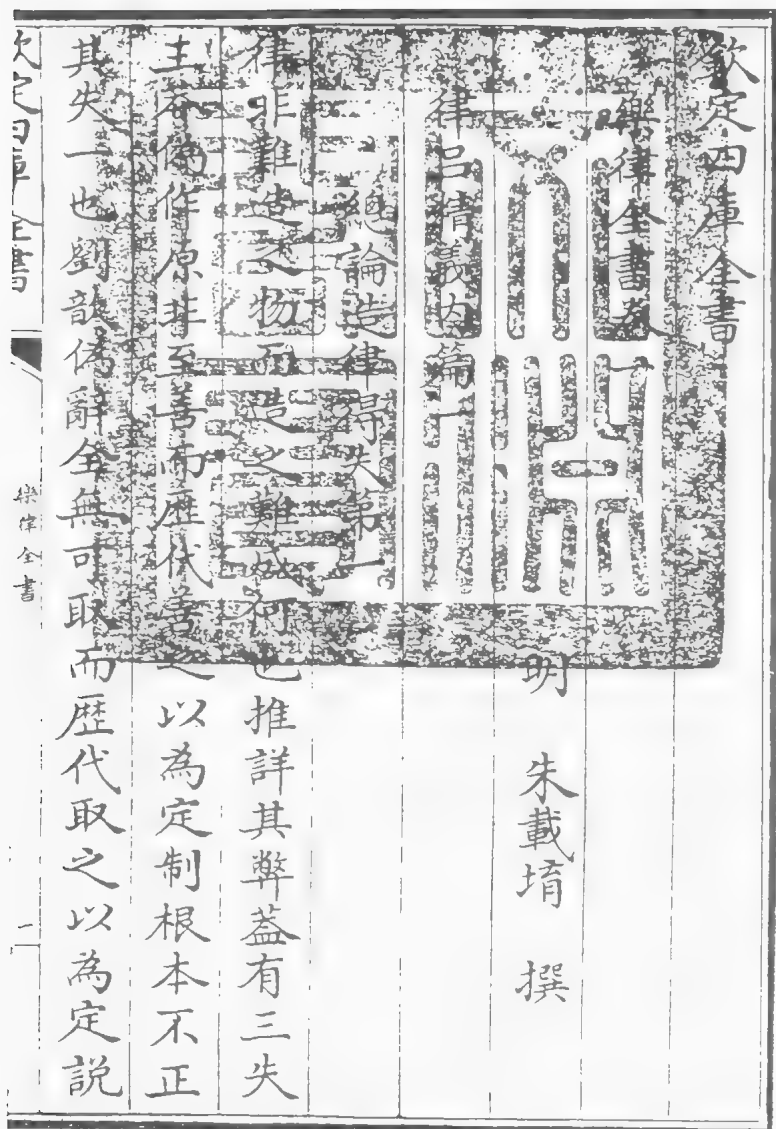 欽定四庫全書
樂律全書卷一
明 朱載堉 撰
律呂精義内篇一
總論造律得失第一
律非難造之物而造之難成何也推詳其弊蓋有三失
王莽偽作原非至善而歷代善之以為定制根本不正
其失一也劉歆偽辭全無可取而歴代取之以為定説
欽定四庫全書
樂律全書
一